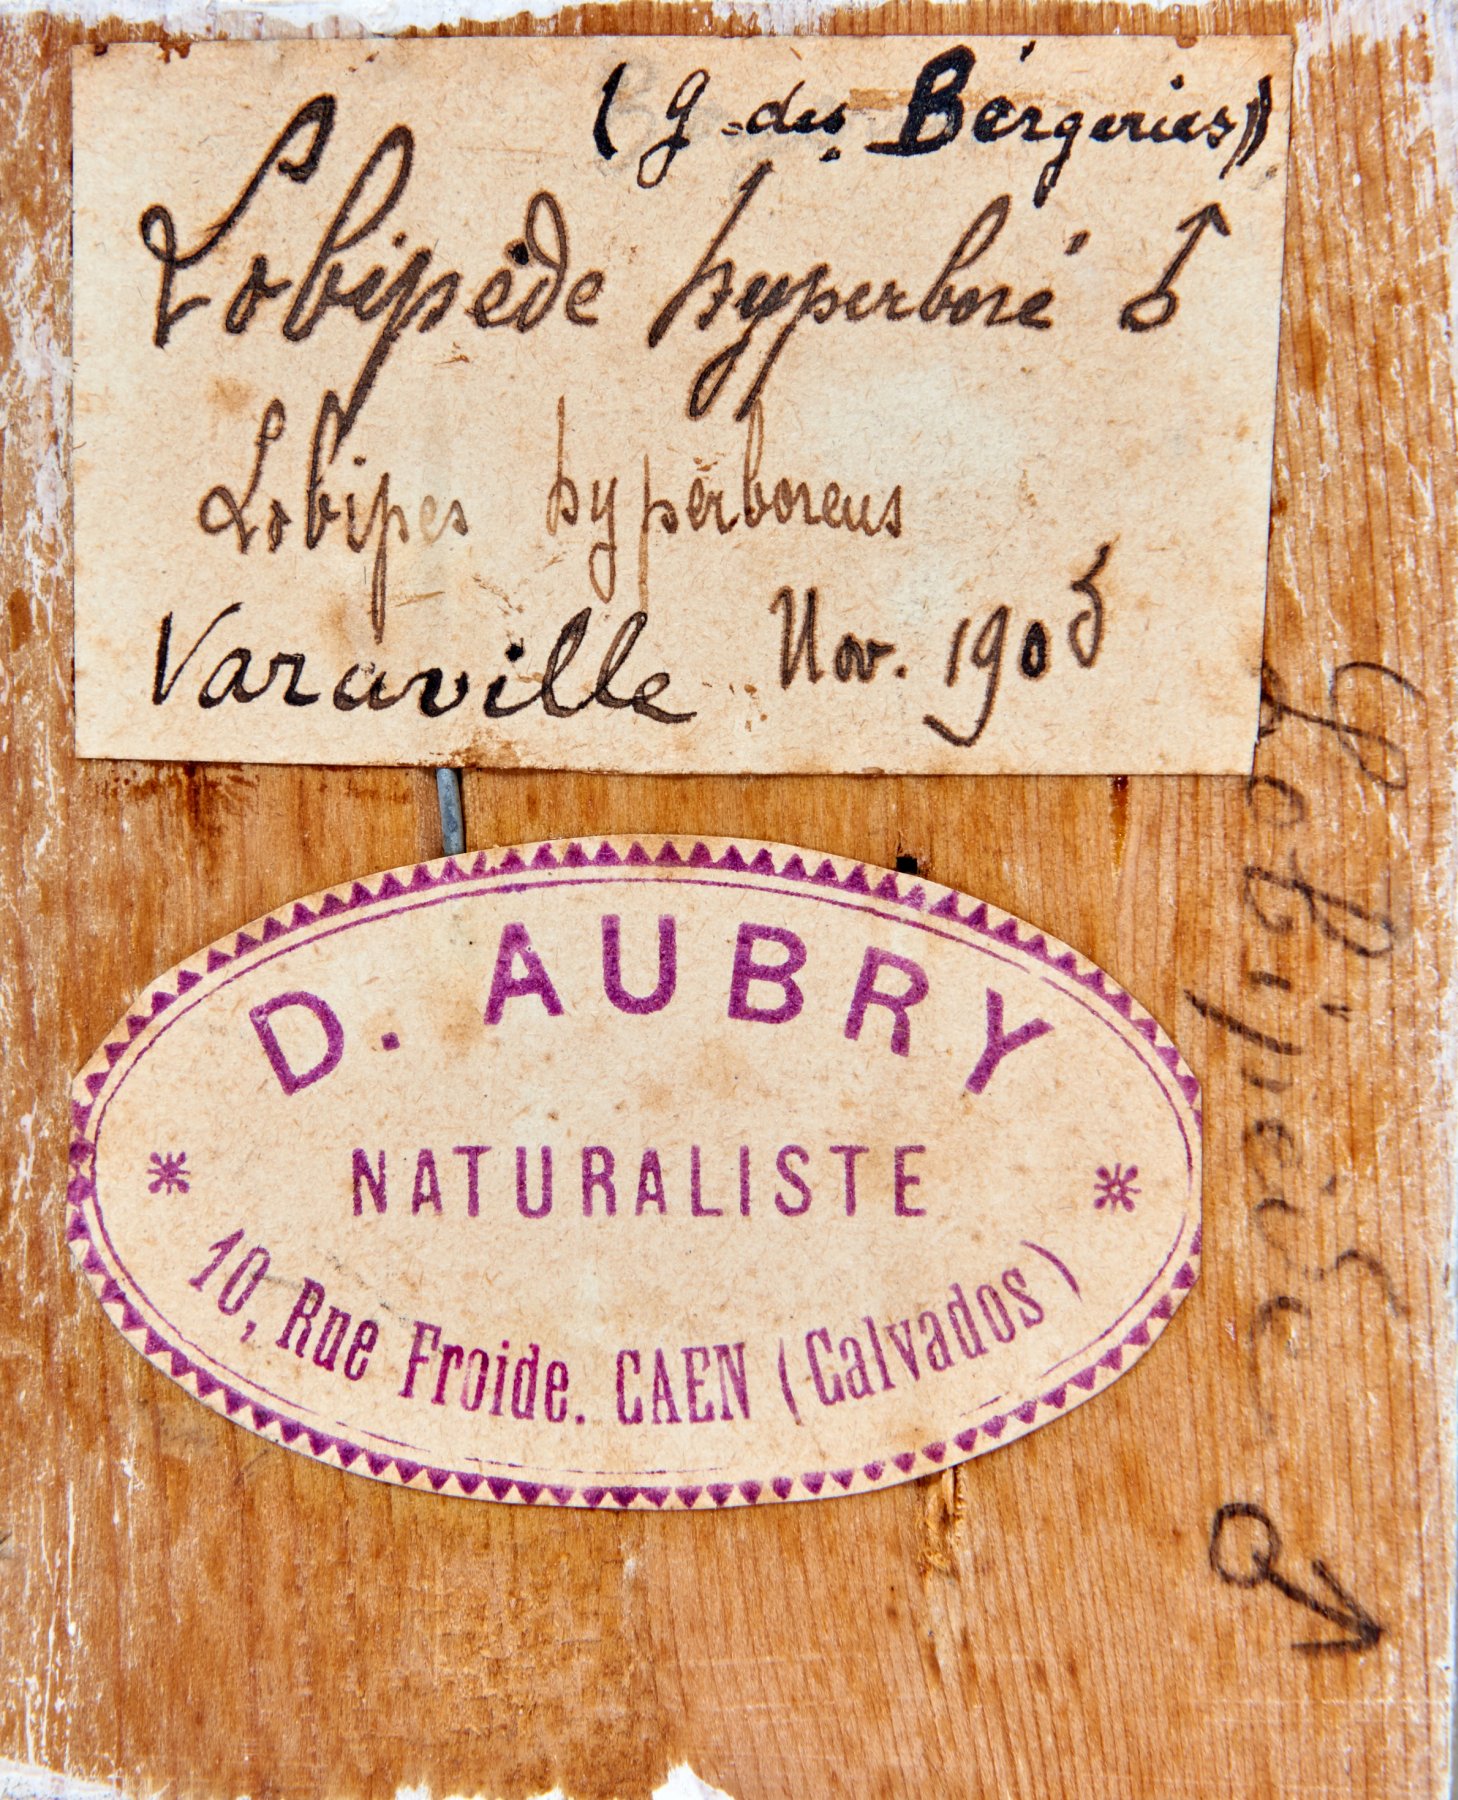 (g. des Bergeries)
Lobipède hyperboré ♂
Lobipes hyperboreus
Varaville Nov. 1905
D. AUBRY
NATURALISTE
10, Rue Froide. CAEN (Calvados)
♂